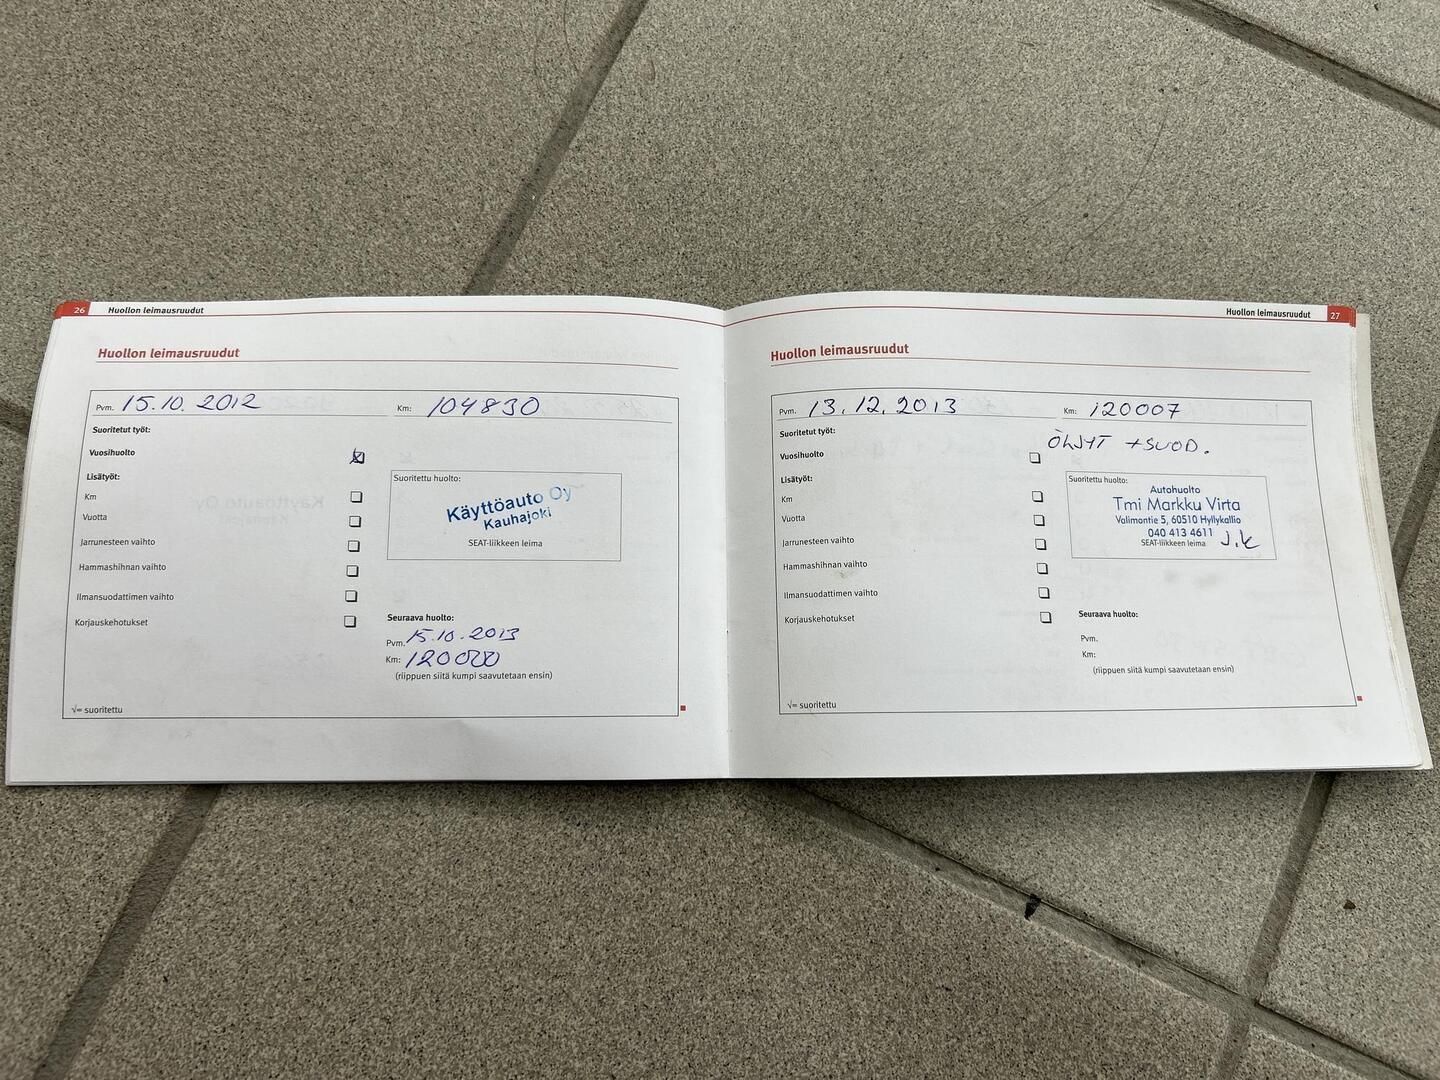 26 Huollon leimausruudut
Huollon leimausruudut
Pvm. 15.10.2012 Km: 104830
Suoritetut työt:
Vuosihuolto
Lisätyöt:
Km
Vuotta
Jarrunesteen vaihto
Hammashihnan vaihto
Ilmansuodattimen vaihto
Korjauskehotukset
√= suoritettu
Suoritettu huolto:
Käyttöauto Oy
Kauhajoki
SEAT-liikkeen leima
Seuraava huolto:
Pvm. 15.10.2013
Km: 120000
(riippuen siitä kumpi saavutetaan ensin)
Huollon leimausruudut 27
Huollon leimausruudut
Pvm. 13.12.2013 Km: 120007
ÖLJYT +SUOD.
Suoritetut työt:
Vuosihuolto
Lisätyöt:
Km
Vuotta
Jarrunesteen vaihto
Hammashihnan vaihto
Ilmansuodattimen vaihto
Korjauskehotukset
√= suoritettu
Suoritettu huolto:
Autohuolto
Tmi Markku Virta
Valimontie 5, 60510 Hyllykallio
040 413 4611
SEAT-liikkeen leima J.K
Seuraava huolto:
Pvm.
Km:
(riippuen siitä kumpi saavutetaan ensin)